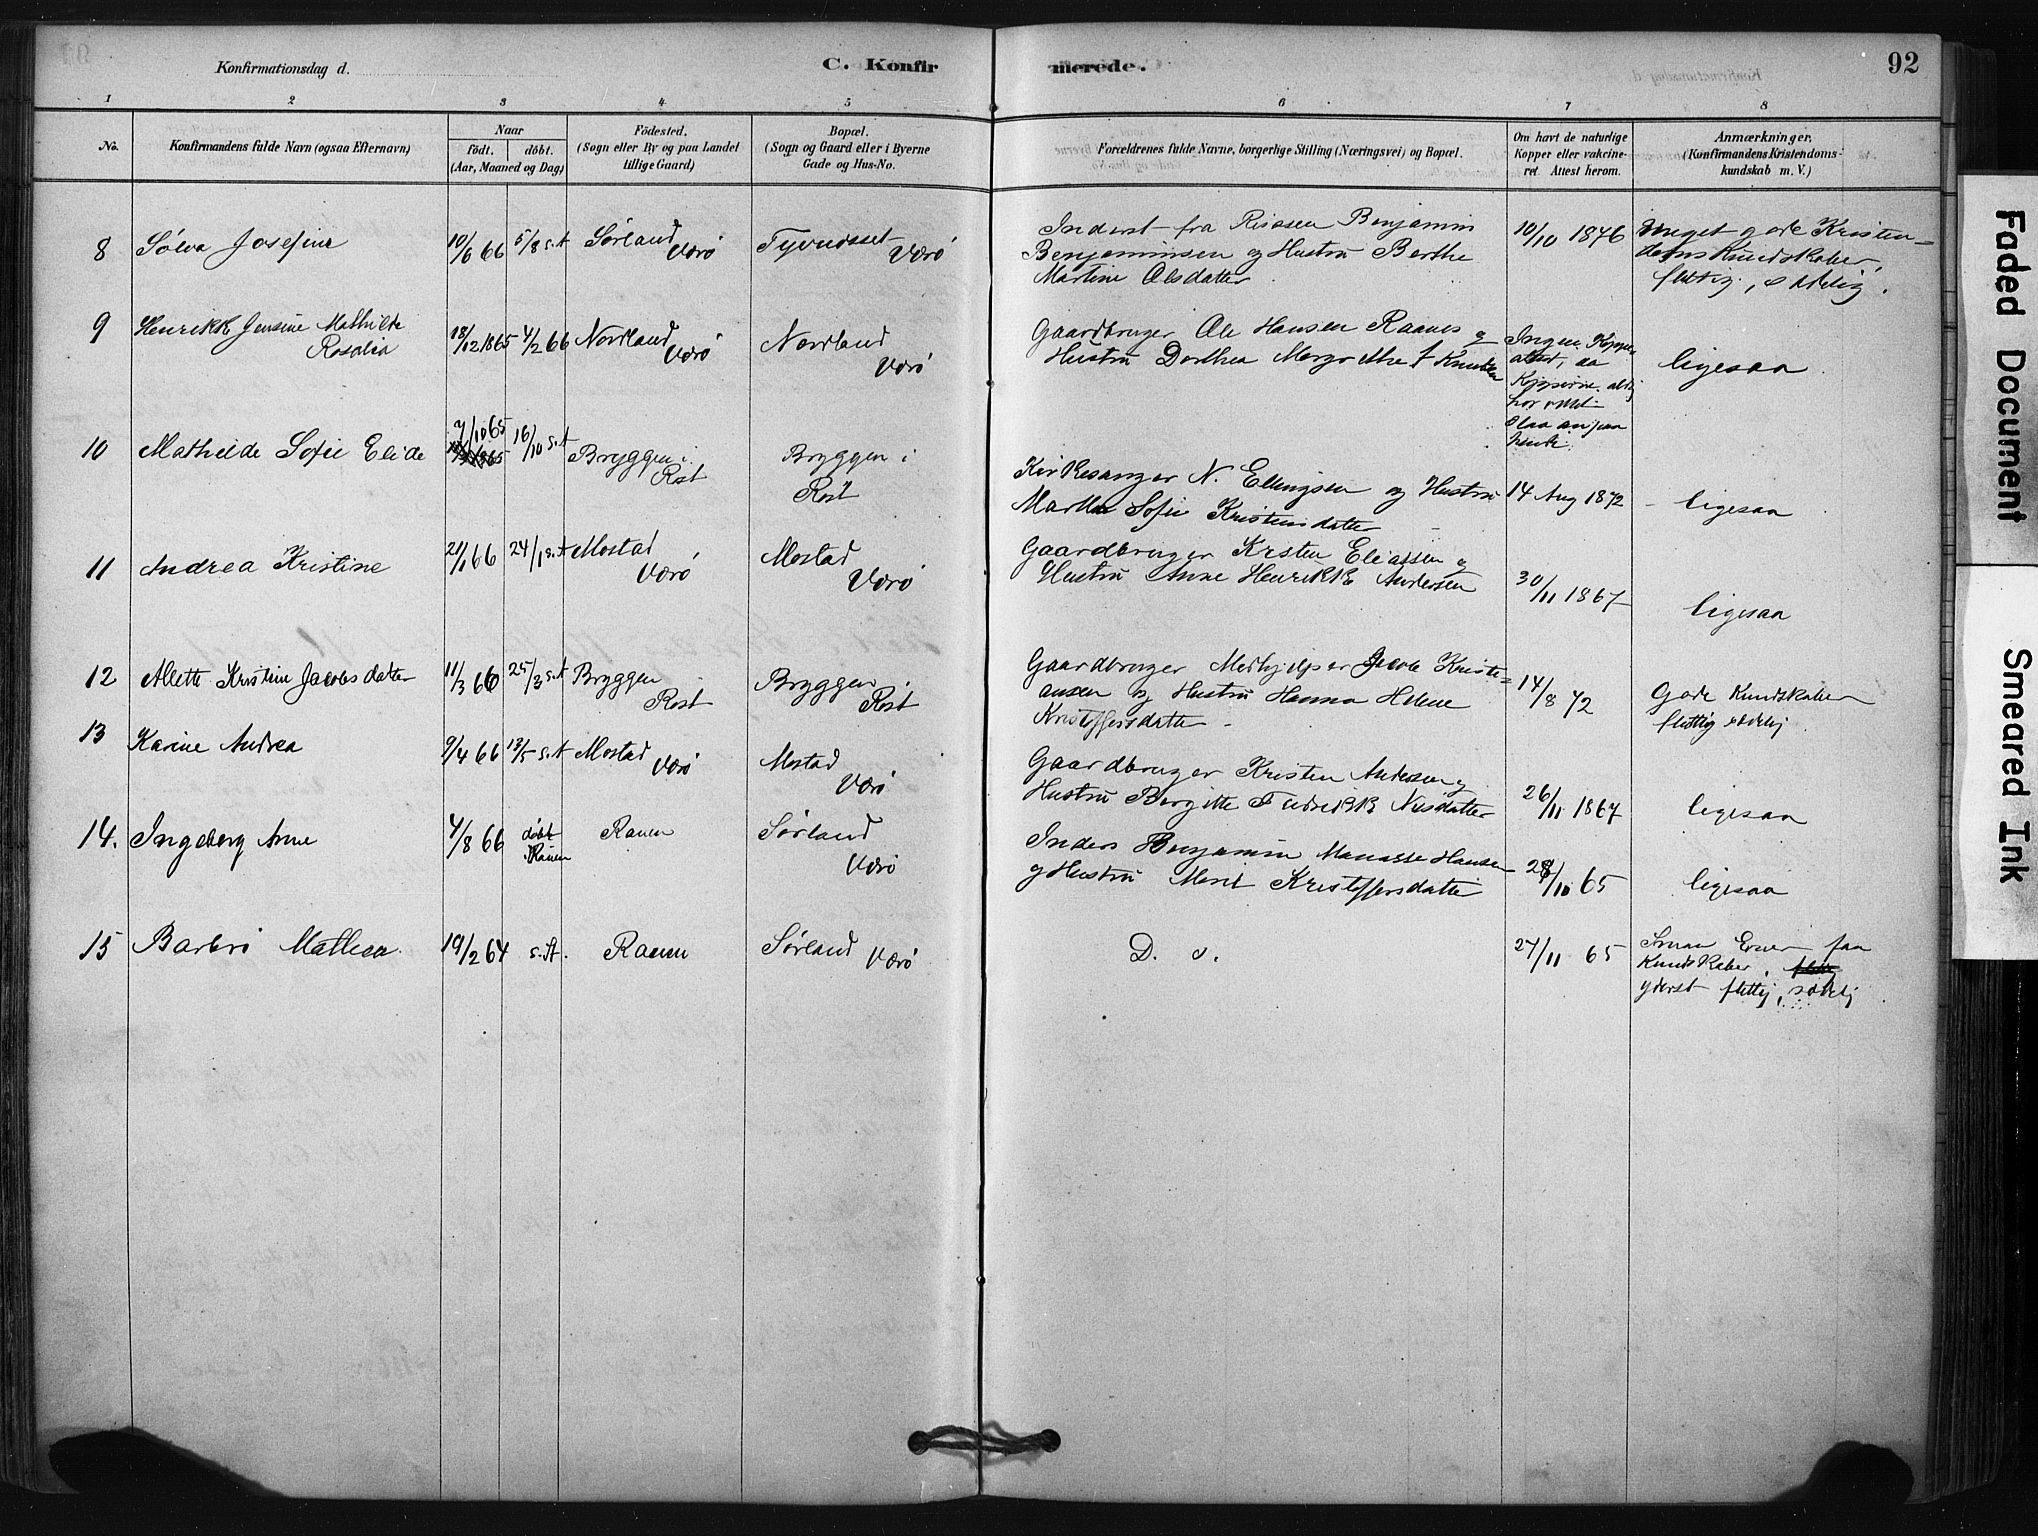 Konfirmationsdag d.
C. Konfirmerede.
92
1 2 3 4 5 6 7 8
No.
Konfirmandens fulde Navn (ogsaa Efternavn)
Naar
födt. döbt.
(Aar, Maaned og Dag)
Födested.
(Sogn eller By og paa Landet
tillige Gaard)
Bopæl.
(Sogn og Gaard eller i Byerne
Gade og Hus-No.
Forældrenes fulde Navne, borgerlige Stilling (Næringsvei) og Bopæl.
Om havt de naturlige
Kopper eller vakcine-
ret. Attest herom.
Anmærkninger.
(Konfirmandens Kristendoms-
kundskab m. V.)
8 Sølva Josefine 10/6 66 5/8 s.A Sørland Værø Værø
Inderst fra Benjamin
Benjaminsen og Hustru Berthe
Martine Olsdatter
10/10 1876
Meget gode Kristen-
doms Kundskaber,
flittig, sædelig.
9 Henrikke Jensine Mathilde
Rosalia
18/12 1865 4/2 66 Nordland Værø Nordland Værø
Gaardbruger Ole Hansen Raanes og
Hustru Dorthea Margrethe f Knudsen
Ingen Koppe-
attest, da
Kopperne aldrig
har villet
slaa an paa
hende
ligesaa
10 Mathilde Sofie Elide 7/10 65 16/10 s.A Bryggen i Røst Bryggen i Røst
Kirkesanger N. Ellingsen og Hustru
Martha Sofie Kristensdatter
14 Aug 1872
ligesaa
11 Andrea Kristine 21/1 66 24/1 s.A Mostad Værø Mostad Værø
Gaardbruger Krsten Eliassen og
Hustru Anne Henrikke Andersen
30/11 1867
ligesaa
12 Alette Kristine Jacobsdatter 11/3 66 25/3 s.A Bryggen Røst Bryggen Røst
Gaardbruger Medhjelper Jacob Kristi-
ansen og Hustru Hanna Helene
Kristoffersdatter
14/8 72
Gode Kundskaber
flittig sædelig
13 Karine Andrea 9/4 66 13/5 s.A Mostad Værø Mostad Værø
Gaardbruger Kristen Andersen og
Hustru Bergitte Fredrikke Nilsdatter
26/11 1867
ligesaa
14. Ingeberg Anne 4/8 66 døbt Ranen Ranen Sørland Værø
Inders Benjamin Manasse Hansen
og Hustru Marit Kristoffersdatter
28/10 65
ligesaa
15 Barbrø Mathea 19/2 64 s.A. Ranen Sørland Værø
D. s.
27/11 65
Smaa Evner faa
Kundskaber,
yderst flittig, sædelig
Faded Document
Smeared Ink